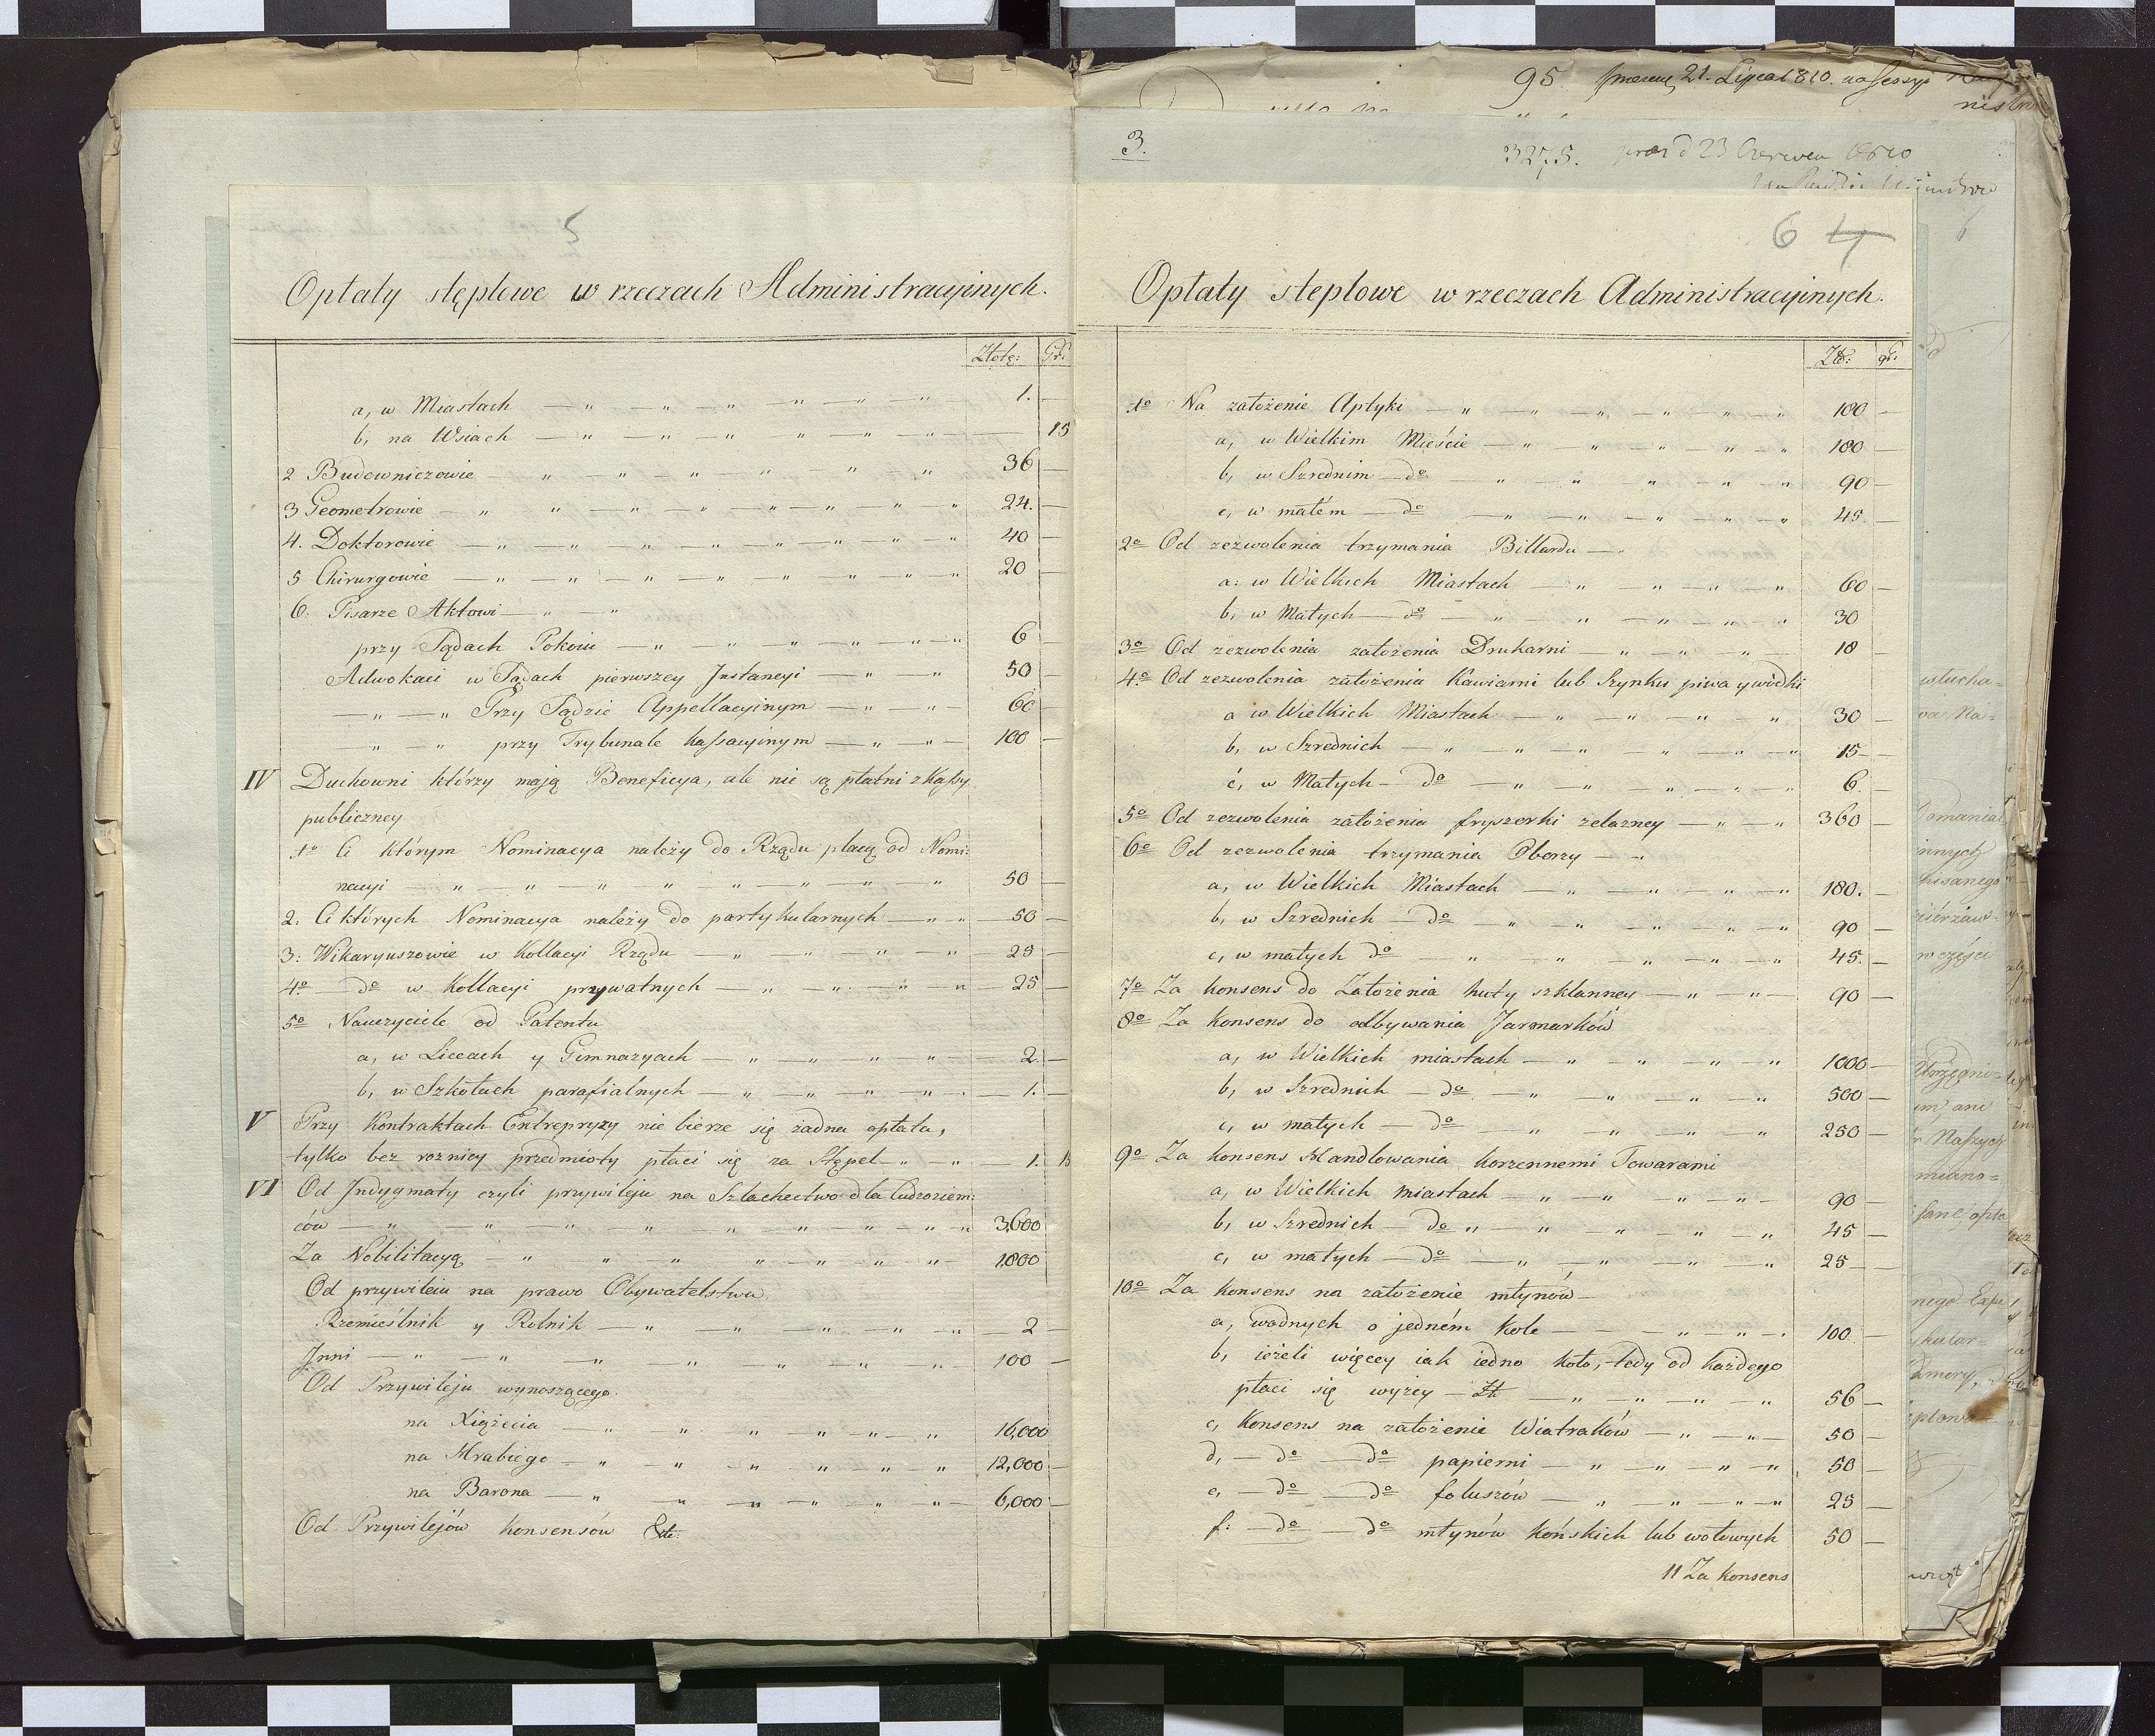 5
Opłaty stęplowe w rzeczach Administracyinych.
Złotę: Gr:
a, w Miastach — " — " — " — " — " — " 1. —
b, na Wsiach — " — " — " — " — " — " — 15
2 Budowniczowie — " — " — " — " — " — " 36 —
3 Geometrowie — " — " — " — " — " — " — " — " 24. —
4. Doktorowie — " — " — " — " — " — " — " — " 40 —
5 Chirurgowie — " — " — " — " — " — " — " — " 20 —
6. Pisarze Aktowi — " — "
przy Sądach Pokoiu — " — " — " — " — " — " 6 —
Adwokaci w Sądach pierwszey Instancyi — " — " 50 —
— " — " Przy Sądzie Appellacyinym — " — " — 60 —
" — " przy Trybunale Kassacyinym — " — " — 100 —
IV Duchowni którzy mają Beneficya, ale nie są płatni z Kassy
publiczney
1o Ci którym Nominacya należy do Rządu płacą od Nomi:
nacyi — " — " — " — " — " — " — " — " 50 —
2: Ci których Nominacya należy do partykularnych — " — " 50 —
3: Wikaryuszowie w Kollacyi Rządu — " — " — " — " 25 —
4o do w Kollacyi prywatnych — " — " — " — " 25 —
5o Nauczyciele od Patentu
a, w Liceach y Gimnazyach — " — " — " — " — 2. —
b, w Szkołach parafialnych — " — " — " — " — 1. —
V Przy Kontraktach Entrepryzy nie bierze się żadna opłata,
tylko bez roznicy przedmioty płaci się za Stępel — " — " — 1. 15
VI Od Indygmaty czyli przywileju na Szlachectwo dla Cudzoziem:
ców — " — " — " — " — " — " — " — " 3,600
Za Nobilitacyą — " — " — " — " — " — " — " 1,800
Od przywileiu na prawo Obywatelstwa
Rzemieślnik y Rolnik — " — " — " — " — " — 2 —
Inni — " — " — " — " — " — " — " — 100 —
Od Przywileju wynoszącego.
na Xiążęcia — " — " — " — " — " — " 16,000
na Hrabiego — " — " — " — " — " — " 12,000 —
na Barona — " — " — " — " — " — " 6,000 —
Od Przywilejów konsensów &tc:
95 21. Lipca 1810. na Sessyi
3.
3275. 23 Czerwca 1810
6 4
Opłaty steplowe w rzeczach Administracyinych.
Zło: gr:
1o Na założenie Aptyki — " — " — " — " — " — " 180 —
a, w Wielkim Mieście — " — " — " — " — " 180 —
b, w Szrednim — do — " — " — " — " — " 90 —
c, w małém — do — " — " — " — " — " 45. —
2o Od zezwolenia trzymania Billardu — "
a: w Wielkich Miastach — " — " — " — " 60 —
b, w Małych — do — " — " — " — " — " 30
3o Od zezwolenia założenia Drukarni — " — " — " — 18 —
4.o Od zezwolenia założenia Kawiarni lub Szynku piwa y wódki
a w Wielkich Miastach — " — " — " — " 30 —
b, w Szrednich — " — " — " — " — " — " 15 —
c, w Małych — do — " — " — " — " — " 6. —
5o Od zezwolenia założenia fryszerki zelazney — " — " 360 —
6o Od zezwolenia trzymania Oberzy — "
a, w Wielkich Miastach — " — " — " — " 180. —
b, w Szrednich — do — " — " — " — " — " 90 —
c, w małych do — " — " — " — " — " 45. —
7o Za konsens do Założenia huty szklanney — " — " — 90 —
8o Za Konsens do odbywania Jarmarków
a, w Wielkich miastach — " — " — " — " 1000 —
b, w Szrednich — do — " — " — " — " 500 —
c, w małych — do — " — " — " — " 250 —
9o Za konsens Handlowania korzennemi Towarami
a, w Wielkich miastach — " — " — " — " — 90 —
b, w Szrednich — do " — " — " — " — " 45 —
c, w małych — do — " — " — " — " 25 —
10o Za konsens na założenie młynów —
a, wodnych o jedném Kole — — " — " — . 100. —
b, ieżeli więcey iak iedno koło, tedy od każdego
płaci się wyżey — Zł — " — " — " — " 56 —
c, Konsens na założenie Wiatraków — " — " — 50 —
d, — do — do papierni — " — " — " — " 50 —
e, — do — do foluszów — " — " — " — " 25 —
f: — do — do młynów końskich lub wołowych 50 —
11 Za konsens